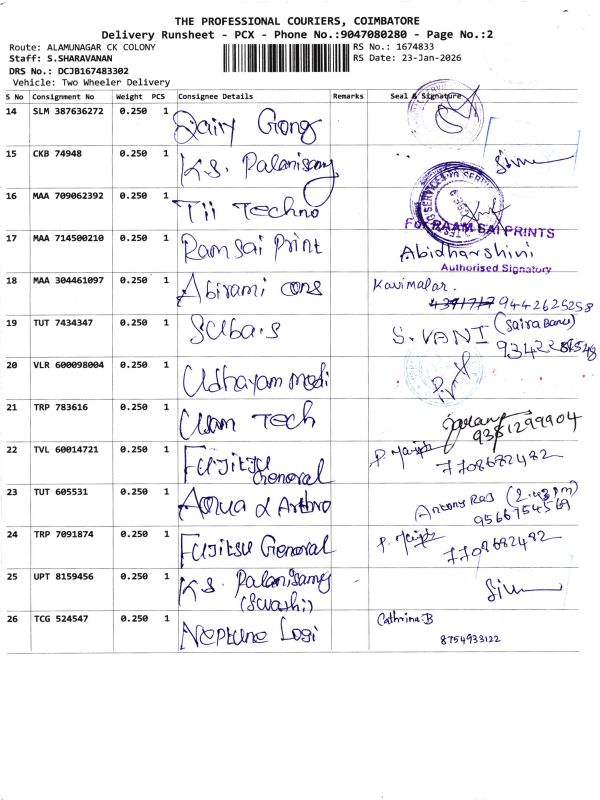 THE PROFESSIONAL COURIERS, COIMBATORE
Delivery Runsheet - PCX - Phone No.:9047080280 - Page No.:2
Route: ALAMUNAGAR CK COLONY
RS No.: 1674833
Staff: S.SHARAVANAN
RS Date: 23-Jan-2026
DRS No.: DCJB167483302
Vehicle: Two Wheeler Delivery
S No Consignment No Weight PCS Consignee Details Remarks Seal & Signature
14 SLM 387636272 0.250 1 Dairy Gong
15 CKB 74948 0.250 1 K.S. Palanisamy
16 MAA 709062392 0.250 1 Tii Techno
17 MAA 714500210 0.250 1 Ramsai Print
For RAAM SAI PRINTS
Abidharshini
Authorised Signatory
18 MAA 304461097 0.250 1 Abirami cons Kavimalar.
9442625258
19 TUT 7434347 0.250 1 Suba.s S. VANI (Saira Banu)
20 VLR 600098004 0.250 1 Udhayam modi
21 TRP 783616 0.250 1 Uam Tech
9381299904
22 TVL 60014721 0.250 1 Fujitsu General
7708682482
23 TUT 605531 0.250 1 Aqua & Arthro Antony Raj (2.43 pm)
9566754569
24 TRP 7091874 0.250 1 Fujitsu General
7708682482
25 UPT 8159456 0.250 1 K.S. Palanisamy
(Swathi)
26 TCG 524547 0.250 1 Neptune Logi Cathrina.B
8754933122